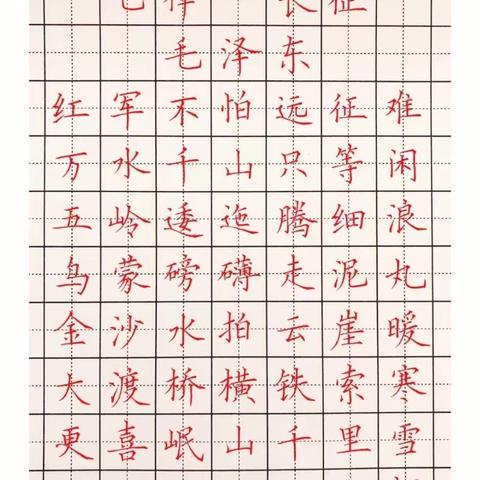 七律 长征
毛泽东
红军不怕远征难
万水千山只等闲
五岭逶迤腾细浪
乌蒙磅礴走泥丸
金沙水拍云崖暖
大渡桥横铁索寒
更喜岷山千里雪